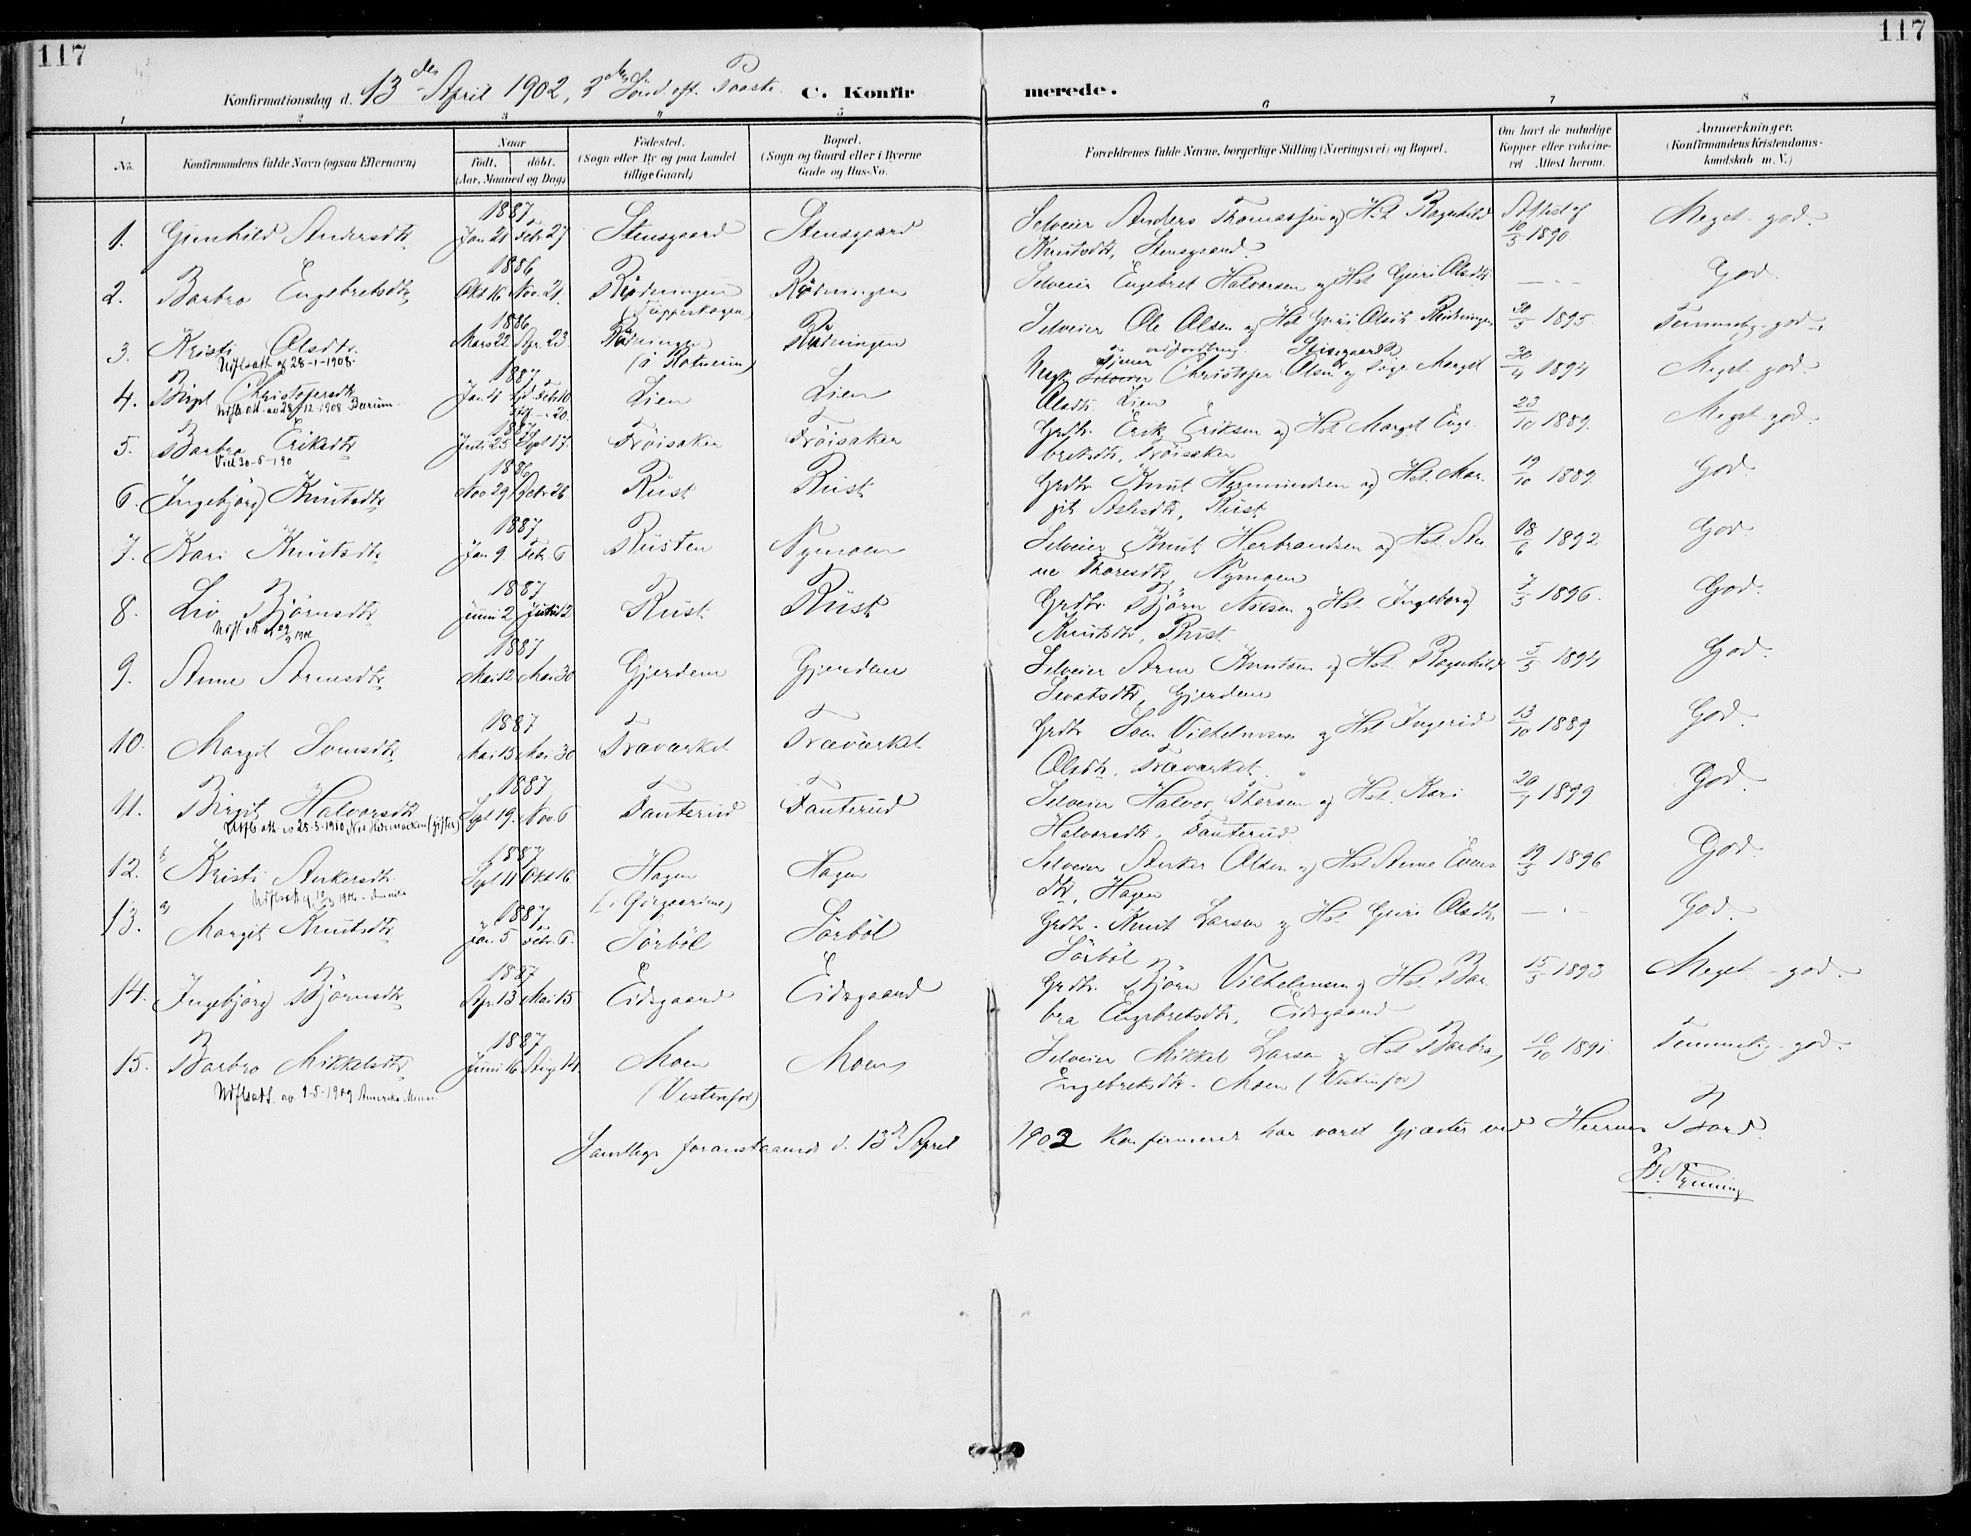 117
117
Konfirmationsdag d. 13des April 1902, 2den Sönd. eft. Paaske. C. Konfirmerede.
1 2 3 4 5 6 7 8
No. Konfirmandens fulde Navn (ogsaa Efternavn) Naar født, døbt. (Aar, Maaned og Dag) Fødested. (Sogn eller By og paa Landet tillige Gaard) Bopæl. (Sogn og Gaard eller i Byerne Gade og Hus-No. Forældrenes fulde Navne, borgerlige Stilling (Næringsvei) og Bopæl. Om havt de naturlige Kopper eller vakcineret Attest herom. Anmærkninger. (Konfirmandens Kristendomskundskab m. V.)
1. Gunhild Andersdtr 1887 Jan 21 Febr 27 Stensgaard Stensgaard Selveier Anders Thomassen og Hst Ragnhild Knutsdtr, Stensgaard. Attest af 10/5 1890 Meget god.
2. Barbro Engebretsdtr 1886 Okt 16 Nov. 21. Rødningen Rødningen Selveier Engebret Halvorsen og Hst Guri Olsdtr — . — God.
3. Kristi Olsdtr. 1886 Mars 22 Apr. 23 Rødningen Rødningen Selveier Ole Olsen og Hst Guri Olsdtr Rødningen 1895 Temmelig god
Udflsatt. af 28-1-1908.
4. Birgit Christofersdtr 1887 Jan. 4 Febr 10 — 20 Lien Lien Christofer Olsen og Pige Margit Olsdtr. Lien 30/4 1894 Meget god.
Udfl. att. av 28/12-1908 Bærum
5. Barbro Eriksdtr 1887 Juli 25 Sept 17 Trøisaker Trøisaker Grdbr. Erik Eriksen og Hst Margit Engebretsdtr, Trøisaker 23/10 1889. Meget god.
6. Ingebjörg Knutsdtr 1886 Nov 29 Febr 26 Rust Rust Grdbr. Knut Hermundsen og Hst. Margit Aslesdtr, Rust. 19/10 1889. God
7. Kari Knutsdtr 1887 Jan 9 Febr 6 Rusten Nymoen Selveier Knut Herbrandsen og Hst. Anne Thoresdtr, Nymoen 18/6 1892 God.
8. Liv Björnsdtr 1887 Juni 2 Juli 2 Rust Rust Grdbr. Björn Nilsen og Hst. Ingeborg Knutsdtr, Rust. 7/5 1896. God.
9. Anne Arnesdtr 1887 Mai 12 Mai 30 Gjerdene Gjerdene Selveier Arne Knutsen og Hst. Ragnhild Sevatsdtr, Gjerdene 5/5 1894 God.
10. Margit Svensdtr 1887 Mai 15 Mai 30 Traværket Traværket Grdbr Sven Vilhelmsen og Hst Ingerid Olsdtr. Traværket. 13/10 1889 God.
11. Birgit Halvorsdtr 1887 Sept 19. Nov. 6 Fanterud Fanterud Selveier Halvor Thorsen og Hst. Kari Halvorsdtr. Fanterud. 20/7 1899 God.
12. Kristi Ankersdtr. 1887 Sept 11 Okt 16 Hagen Hagen Selveier Anker Olsen og Hst Anne Evensdtr, Hagen 19/5 1896 God.
13. Margit Knutsdtr 1887 Jan. 5 Febr. 6. Sörböl Sörböl Grdbr. Knut Larsen og Hst Guri Olsdtr. Sörböl — . — God.
14. Ingebjörg Björnsdtr 1887 Apr. 13 Mai 15 Eidsgaard Eidsgaard Grdbr. Björn Vilhelmsen og Hst. Barbra Engebretsdtr, Eidsgaard 15/5 1893 Meget god.
15. Barbro Mikkelsdtr 1887 Juni 16 Aug 14 Moen (Vestenfor) Moen Selveier Mikkel Larsen og Hst Barbro Engebretsdtr. Moen (Vestenfor) 10/10 1891. Temmelig god.
Udflsatt. av 9-5-1909 Amerika
Samtlige foranstaaende d. 13de April 1902 Konfirmerede har været Gjæster ved Herrens Bord.